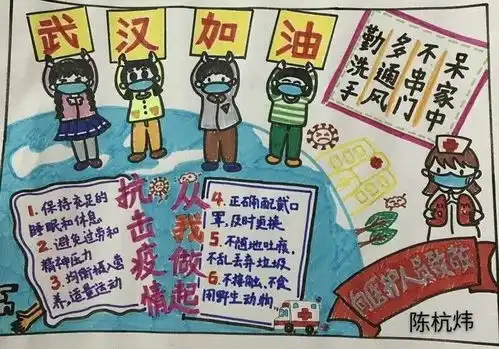 武汉加油
呆家中
不串门
多通风
勤洗手
抗击疫情
从我做起
1. 保持充足的
睡眠和休息
2. 避免过劳和
精神压力
3. 均衡摄入营
养,适量运动
4. 正确配戴口
罩,及时更换
5. 不随地吐痰,
不乱丢弃垃圾
6. 不接触、不食
用野生动物
向医护人员致敬
陈杭炜